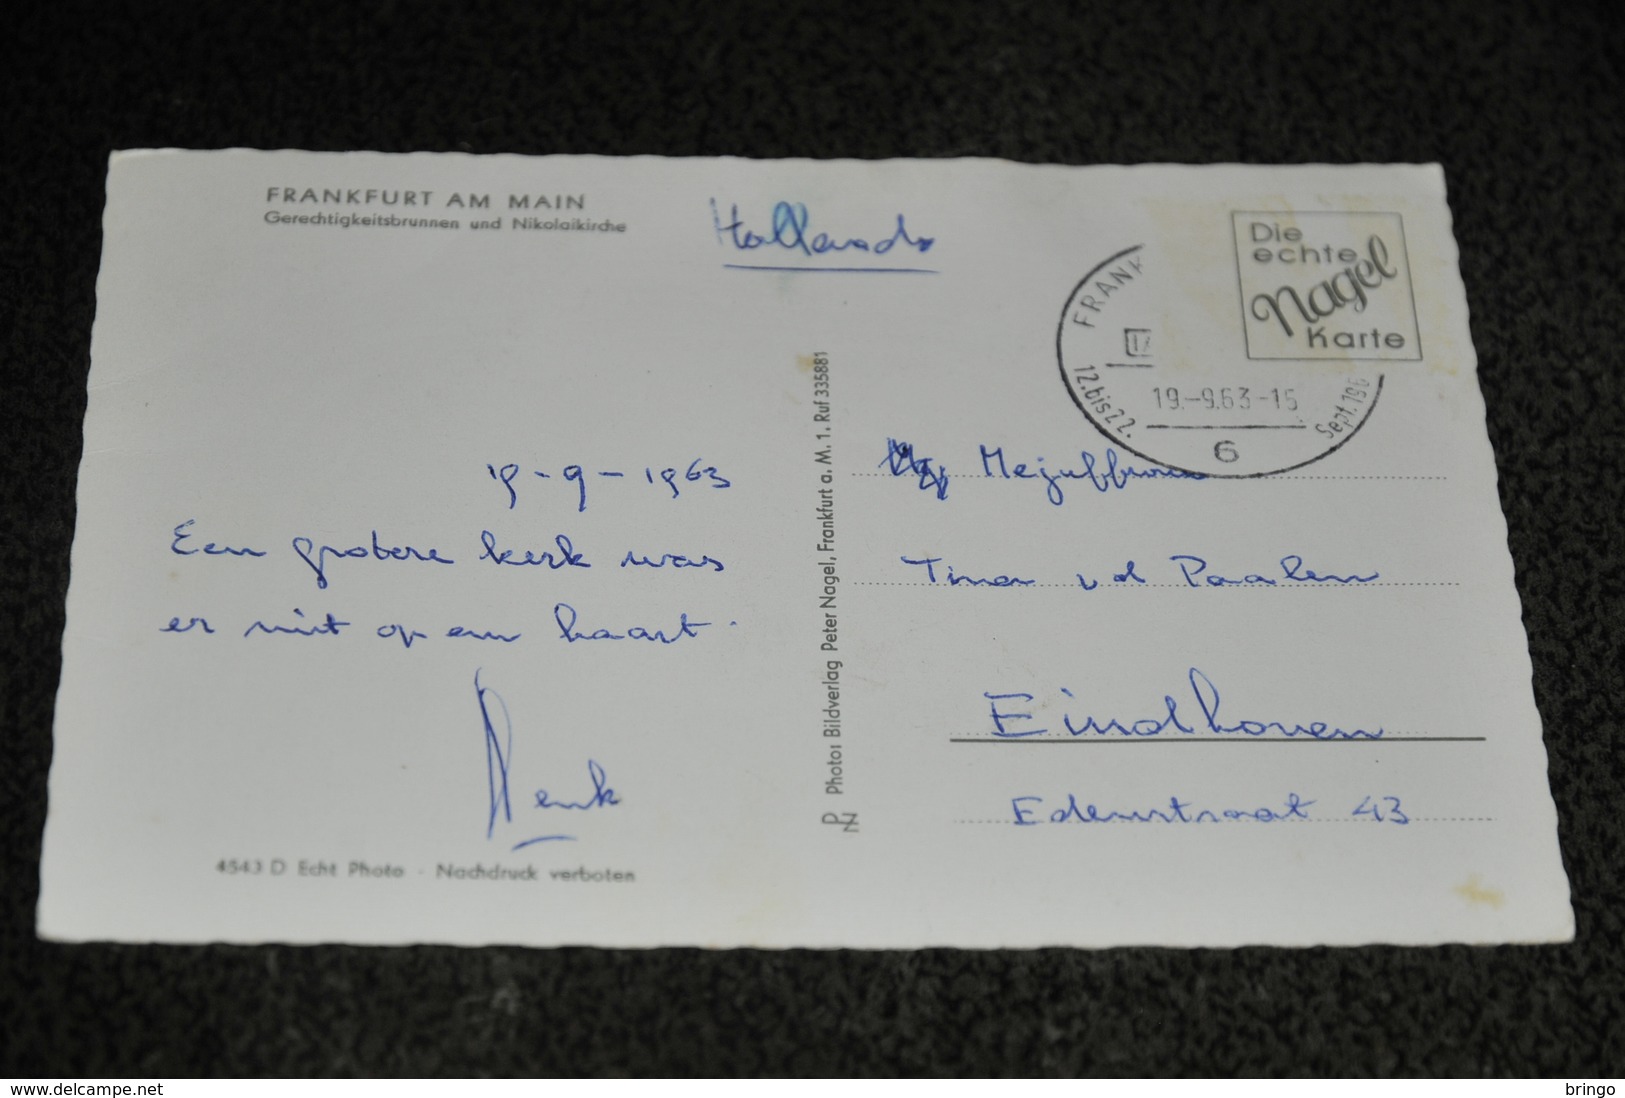 FRANKFURT AM MAIN
Gerechtigkeitsbrunnen und Nikolaikirche
Holland
Die
echte
Nagel
Karte
FRANK
12.bis 22. Sept. 196
19.-9.63-15
6
19-9-1963
Een grotere kerk was
er niet op een kaart.
Henk
4543 D Echt Photo - Nachdruck verboten
Photo: Bildverlag Peter Nagel, Frankfurt a. M. 1. Ruf 335881
PN
Mejuffrouw
Tina v d Paalen
Eindhoven
Edenstraat 43
www.delcampe.net
bringo